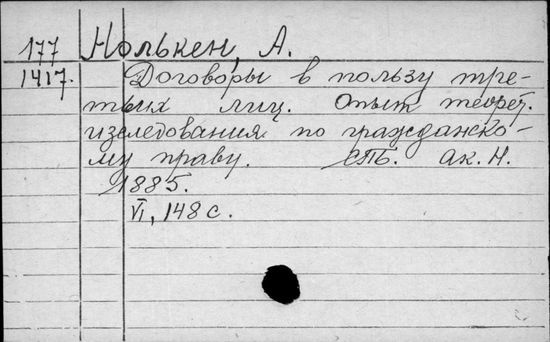 177 Нолькен, А.
1417. Договоры в пользу тре-
тьих лиц. Опыт теорет.
изследования по гражданско-
му праву. СПБ. Ак. Н.
1885.
VI, 148 с.